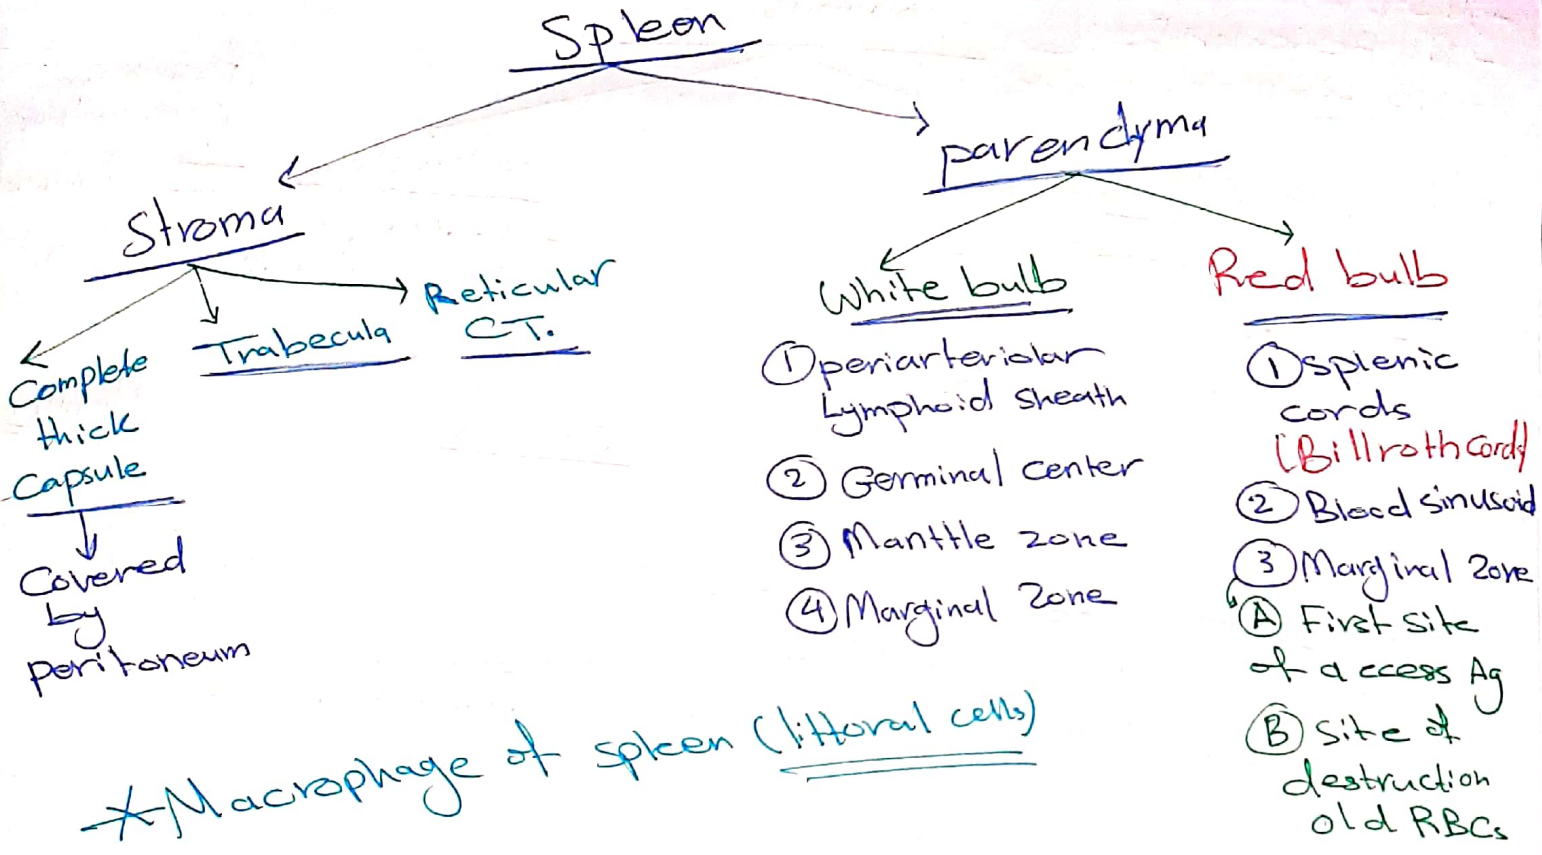 Spleen
Stroma
Complete
thick
Capsule
Covered
by
peritoneum
Trabecula
Reticular
CT.
parenchyma
White bulb
① periarteriolar
Lymphoid sheath
② Germinal center
③ Manttle zone
④ Marginal Zone
Red bulb
① splenic
cords
(Billroth cord)
② Blood sinusoid
③ Marginal Zone
Ⓐ First site
of access Ag
Ⓑ Site of
destruction
old RBCs
*Macrophage of spleen (littoral cells)